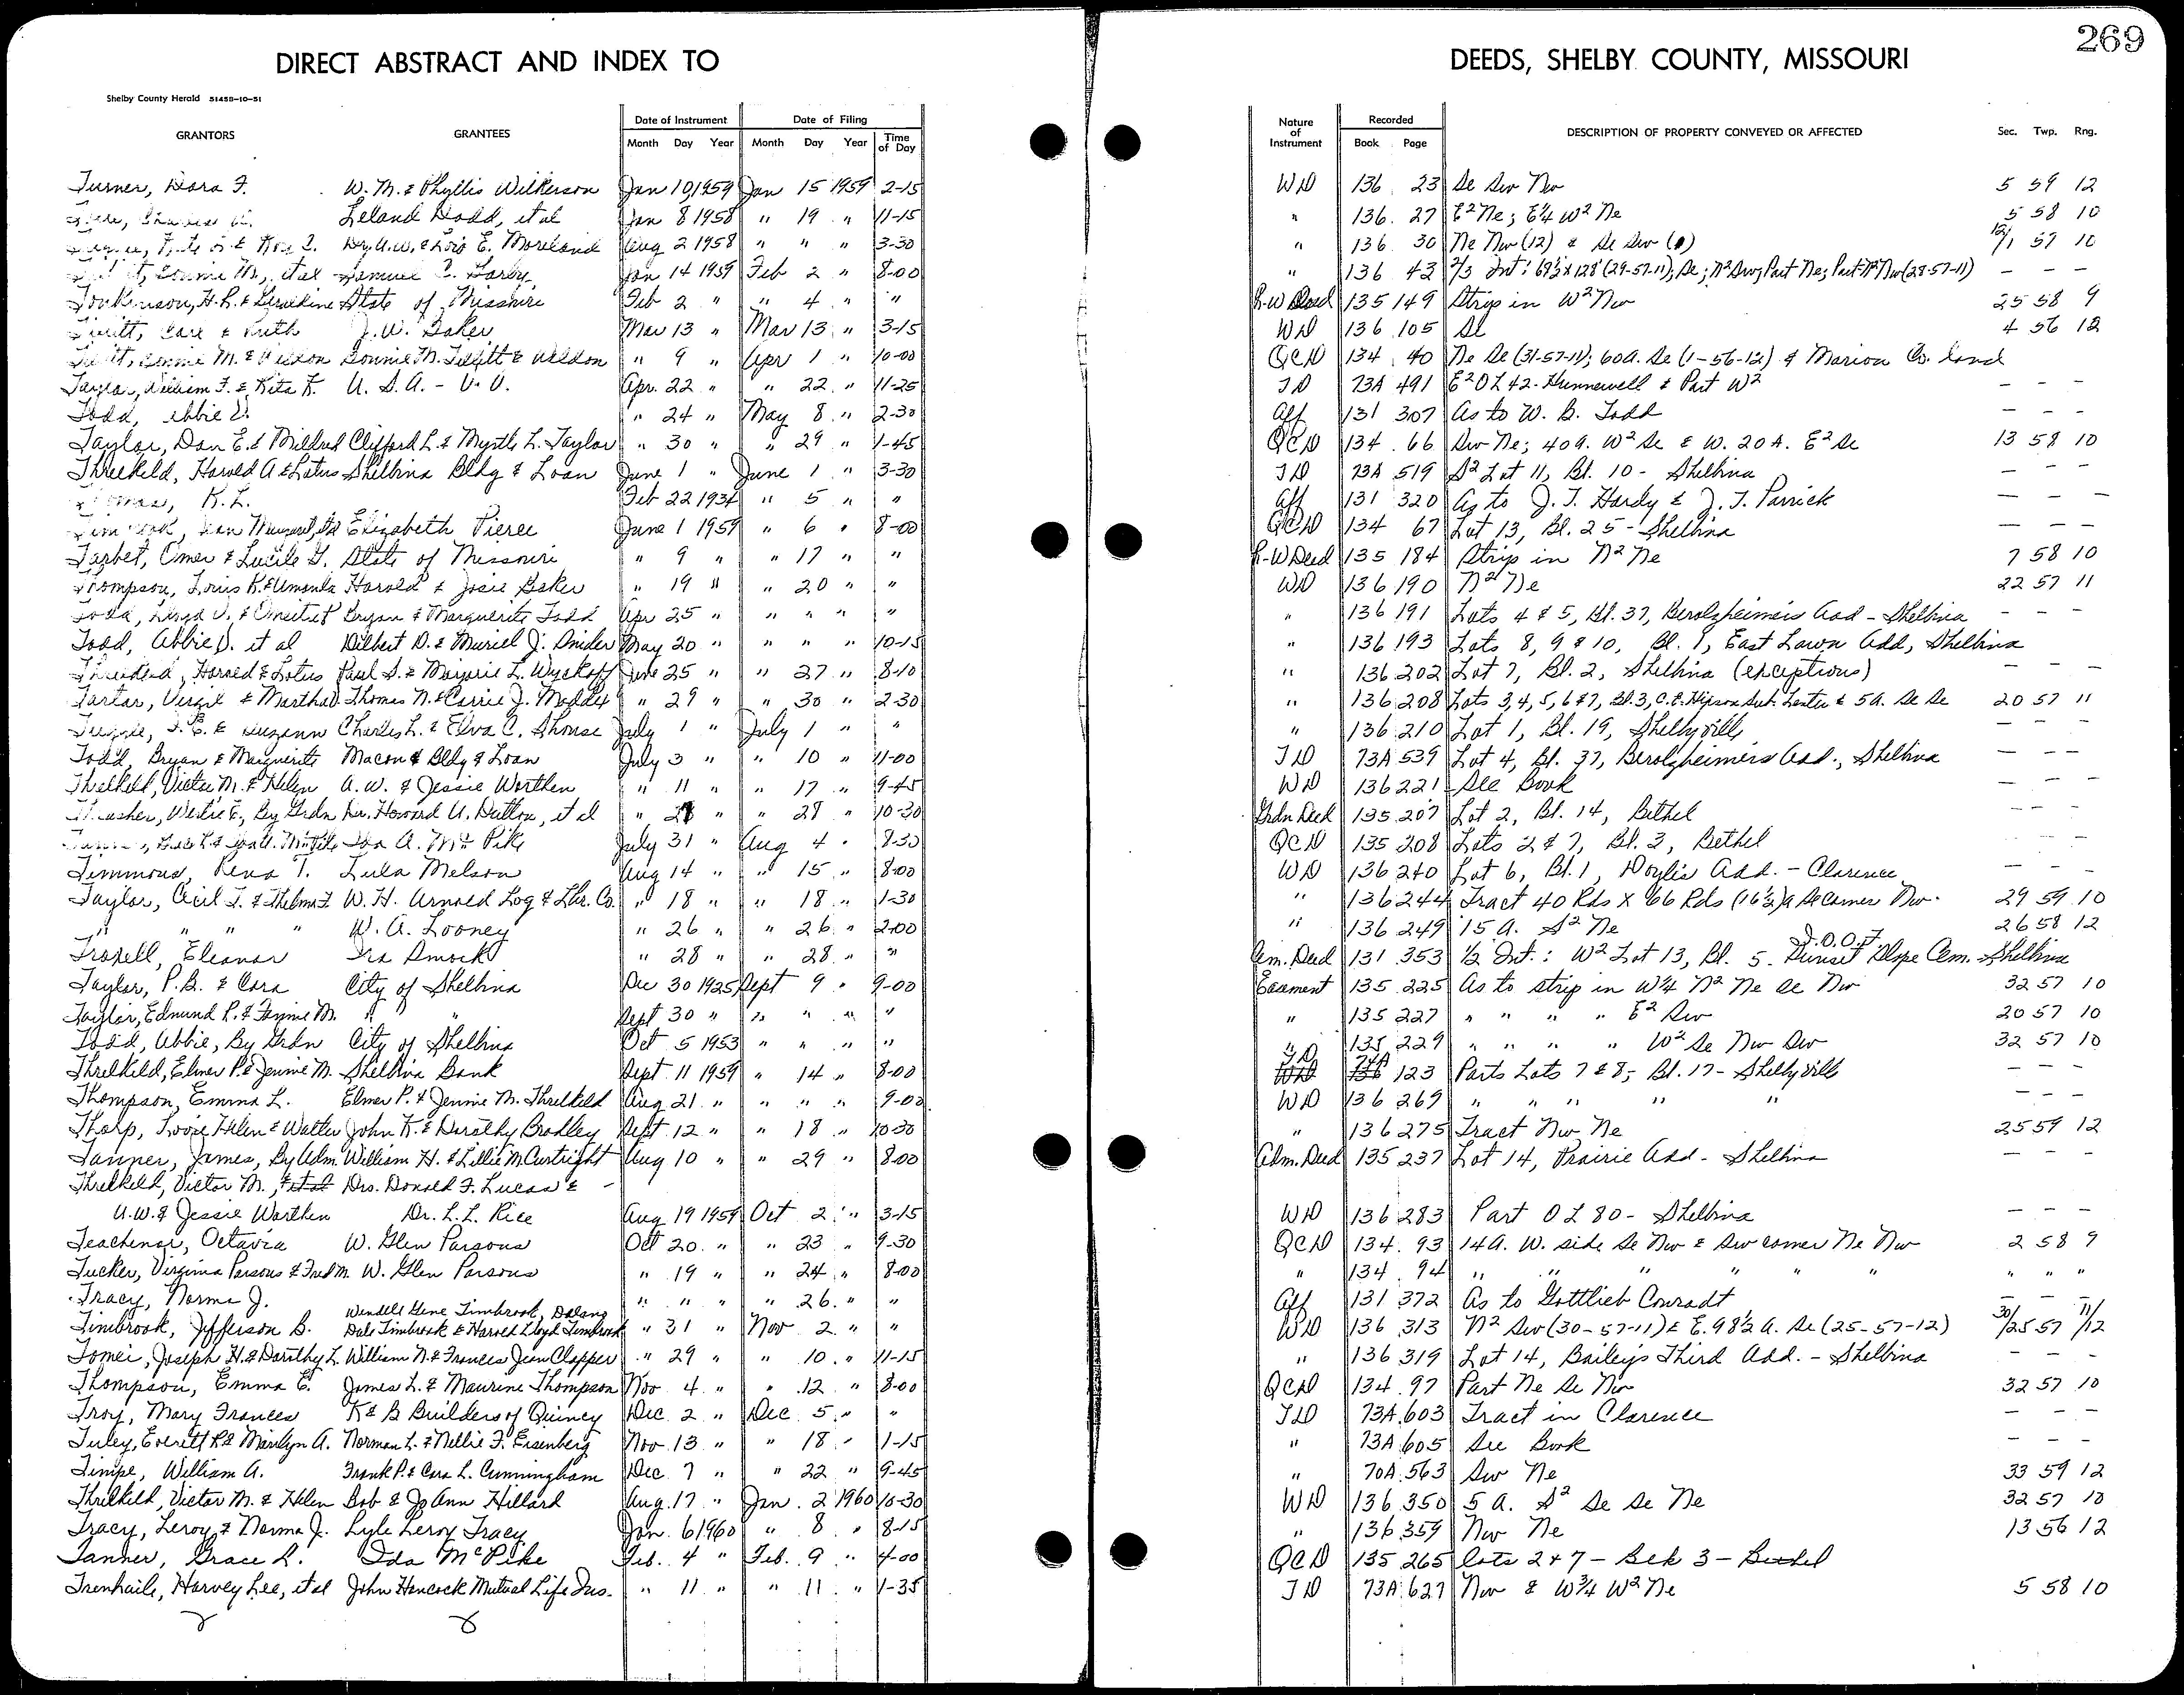 269
DIRECT ABSTRACT AND INDEX TO DEEDS, SHELBY COUNTY, MISSOURI
Shelby County Herald 51458-10-51
GRANTORS GRANTEES Date of Instrument Month Day Year Date of Filing Month Day Year Time of Day Nature of Instrument Recorded Book Page DESCRIPTION OF PROPERTY CONVEYED OR AFFECTED Sec. Twp. Rng.
Turner, Dora F. W. M. & Phyllis Wilkerson Jan 10, 1959 Jan 15 1959 2-15 WD 136 23 Se Sw Nw 5 59 12
Leland Dodd, et al Jan 8 1958 " 19 " 11-15 " 136 27 E² Ne; E¼ W² Ne 5 58 10
E. Moreland Aug 2 1958 " " " 3-30 " 136 30 Ne Nw (12) & Se Sw (1) 12/1 57 10
et al Samuel C. Jan 14 1959 Feb 2 " 8-00 " 136 43 2/3 Int: 69½ x 128' (29-57-11); Se; N² Sw; Part Ne; Part N² Nw (28-57-11) — — —
H. R. & Geraldine State of Missouri Feb 2 " " 4 " " R-W Deed 135 149 Strip in W² Nw 25 58 9
& Ruth J. W. Baker Mar 13 " Mar 13 " 3-15 WD 136 105 Se 4 56 12
M. & Weldon Bonnie M. Tillitt & Weldon " 9 " Apr 1 " 10-00 QCD 134 40 Ne Se (31-57-11); 60A. Se (1-56-12) & Marion Co. land
Taylor, William F. & Rita K. U. S. A. - V. V. Apr. 22 " " 22 " 11-25 TD 73A 491 E² OL 42- Hunnewell & Part W² — — —
Todd, Abbie D. " 24 " May 8 " 2-30 Aff 131 307 As to W. B. Todd — — —
Taylor, Dan E. & Mildred Clifford L. & Myrtle L. Taylor " 30 " " 29 " 1-45 QCD 134 66 Sw Ne; 40A. W² Se & W. 20A. E² Se 13 58 10
Threlkeld, Harold A & Lotus Shelbina Bldg & Loan June 1 " June 1 " 3-30 TD 73A 519 S² Lot 11, Bl. 10 - Shelbina — — —
R. L. Feb 22 1934 " 5 " " Aff 131 320 As to J. T. Hardy & J. T. Parrick — — —
Elizabeth Pierce June 1 1959 " 6 " 8-00 QCD 134 67 Lot 13, Bl. 25 - Shelbina — — —
Tarbet, Omer & Lucile G. State of Missouri " 9 " " 17 " " R-W Deed 135 184 Strip in N² Ne 7 58 10
Thompson, Louis K. & Amanda Harold & Josie Baker " 19 " " 20 " " WD 136 190 N² Ne 22 57 11
Todd, Bryan & Marguerite Todd Apr 25 " " " " " " 136 191 Lots 4 & 5, Bl. 37, Berolzheimer's Add - Shelbina — — —
Todd, Abbie D. et al Dilbert D. & Muriel J. Snider May 20 " " " " 10-15 " 136 193 Lots 8, 9 & 10, Bl. 1, East Lawn Add, Shelbina
Threlkeld, Harold & Lotus Paul S. & Marjorie L. Wyckoff June 25 " " 27 " 8-10 " 136 202 Lot 7, Bl. 2, Shelbina (exceptions) — — —
Tartar, Virgil & Martha D. Thomas N. & Carrie J. Maddex " 29 " " 30 " 2-30 " 136 208 Lots 3, 4, 5, 6 & 7, Bl. 3, C. E. Hipson Sub. Lentner & 5A. Se Se 20 57 11
& Suzann Charles L. & Elva C. Shouse July 1 " July 1 " " " 136 210 Lot 1, Bl. 19, Shelbyville — — —
Todd, Bryan & Marguerite Macon Bldg & Loan July 3 " " 10 " 11-00 TD 73A 539 Lot 4, Bl. 37, Berolzheimer's Add., Shelbina — — —
Threlkeld, Victor M. & Helen A. W. & Jessie Worthen " 11 " " 17 " 9-45 WD 136 221 See Book — — —
Thrasher, By Grdn Howard U. Dutton, et al " 28 " 10-30 Grdn Deed 135 207 Lot 2, Bl. 14, Bethel — — —
Ida A. McPike July 31 " Aug 4 " 8-30 QCD 135 208 Lots 2 & 7, Bl. 3, Bethel — — —
Timmons, Rena T. Lula Melson Aug 14 " " 15 " 8-00 WD 136 240 Lot 6, Bl. 1, Doyle's Add. - Clarence — — —
Taylor, Cecil T. & Thelma F. W. H. Arnold Log & Lbr. Co. " 18 " " 18 " 1-30 " 136 244 Tract 40 Rds x 66 Rds (16½)A Se corner Nw 29 59 10
" " " " W. A. Looney " 26 " " 26 " 2-00 " 136 249 15 A. S² Ne 26 58 12
Troxell, Eleanor Ira Smock " 28 " " 28 " " Cem. Deed 131 353 ½ Int.: W² Lot 13, Bl. 5 - I.O.O.F. Sunset Slope Cem. - Shelbina
Taylor, P. B. & Cora City of Shelbina Dec 30 1925 Sept 9 " 9-00 Easement 135 225 As to strip in W¼ N² Ne Se Nw 32 57 10
Taylor, Edmund R. & Fannie M. " " Sept 30 " " " " " " 135 227 " " " " E² Sw 20 57 10
Todd, Abbie, By Grdn City of Shelbina Oct 5 1953 " " " " " 135 229 " " " " W² Se Nw Sw 32 57 10
Threlkeld, Elmer P. & Jennie M. Shelbina Bank Sept. 11 1959 " 14 " 8-00 TD 74A 123 Parts Lots 7 & 8, Bl. 17 - Shelbyville — — —
Thompson, Emma L. Elmer P. & Jennie M. Threlkeld Aug 21 " " " " 9-00 WD 136 269 " " " " " — — —
Tharp, Helen & Walter John K. & Dorothy Bradley Sept. 12 " " 18 " 10-30 " 136 275 Tract Nw Ne 25 59 12
Tanner, James, By Adm. William H. & Lillie M. Curtright Aug 10 " " 29 " 8-00 Adm. Deed 135 237 Lot 14, Prairie Add - Shelbina — — —
Threlkeld, Victor M., et al Drs. Donald F. Lucas &
A. W. & Jessie Worthen Dr. L. L. Rice Aug 19 1959 Oct 2 " 3-15 WD 136 283 Part OL 80 - Shelbina — — —
Teachenor, Octavia W. Glen Parsons Oct 20 " " 23 " 9-30 QCD 134 93 14A. W. side Se Nw & Sw corner Ne Nw 2 58 9
Tucker, Virginia Parsons & Fred M. W. Glen Parsons " 19 " " 24 " 8-00 " 134 94 " " " " " " " " "
Tracy, Norma J. " " " " 26 " " Aff 131 372 As to Gottlieb Conradt — — —
Timbrook, Jefferson B. Wendell Gene Timbrook, Delano Dale Timbrook & Harold Lloyd Timbrook " 31 " Nov 2 " " WD 136 313 N² Sw (30-57-11) & E. 98½ A. Se (25-57-12) 30/25 57 11/12
Tomei, Joseph H. & Dorothy L. William N. & Frances Jean Clapper " 29 " " 10 " 11-15 " 136 319 Lot 14, Bailey's Third Add. - Shelbina — — —
Thompson, Emma E. James L. & Maurine Thompson Nov 4 " " 12 " 8-00 QCD 134 97 Part Ne Se Nw 32 57 10
Troy, Mary Frances K & B Builders of Quincy Dec. 2 " Dec. 5 " " TD 73A 603 Tract in Clarence — — —
Tuley, Everett R. & Marilyn A. Norman L. & Nellie F. Eisenberg Nov. 13 " " 18 " 1-15 " 73A 605 See Book — — —
Timpe, William A. Frank P. & Cora L. Cunningham Dec. 7 " " 22 " 9-45 " 70A 563 Sw Ne 33 59 12
Threlkeld, Victor M. & Helen Bob & Jo Ann Hillard Aug. 17 " Jan. 2 1960 10-30 WD 136 350 5 A. S² Se Se Ne 32 57 10
Tracy, Leroy & Norma J. Lyle Leroy Tracy Jan. 6 1960 " 8 " 8-15 " 136 359 Nw Ne 13 56 12
Tanner, Grace L. Ida McPike Feb. 4 " Feb. 9 " 4-00 QCD 135 265 Lots 2 + 7 - Belk 3 - Bethel
Trenhaile, Harvey Lee, et al John Hancock Mutual Life Ins. " 11 " " 11 " 1-35 TD 73A 627 Nw & W¾ W² Ne 5 58 10